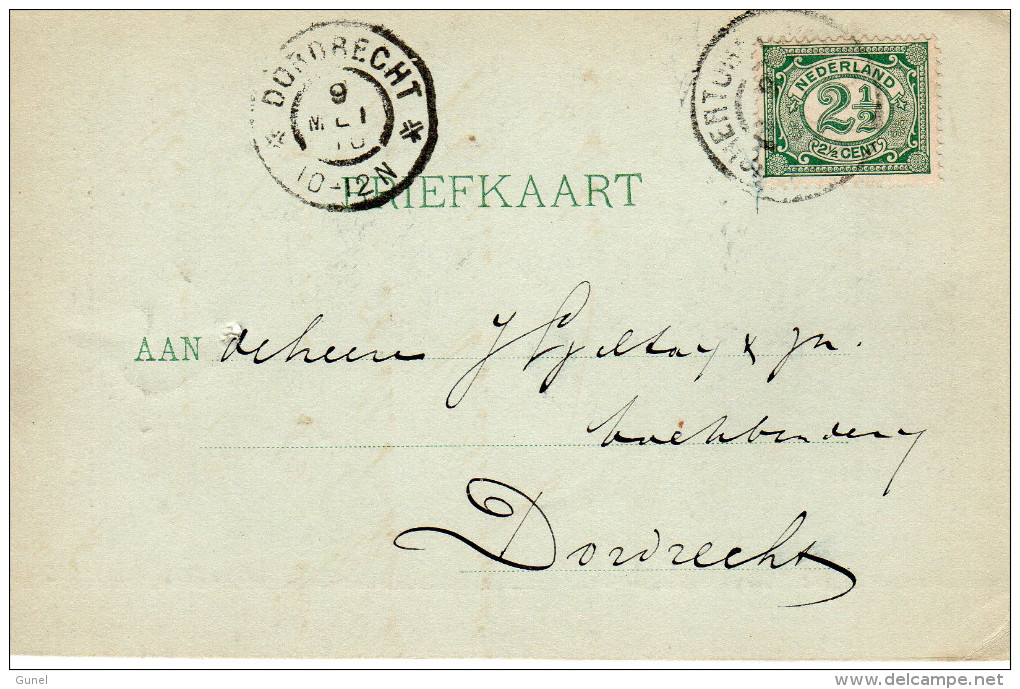 DORDRECHT
9
MEI
10-12N
NEDERLAND
2½
2½ CENT
BRIEFKAART
AAN de heer J
boekbindery
Dordrecht
Gunel
delcampe.net